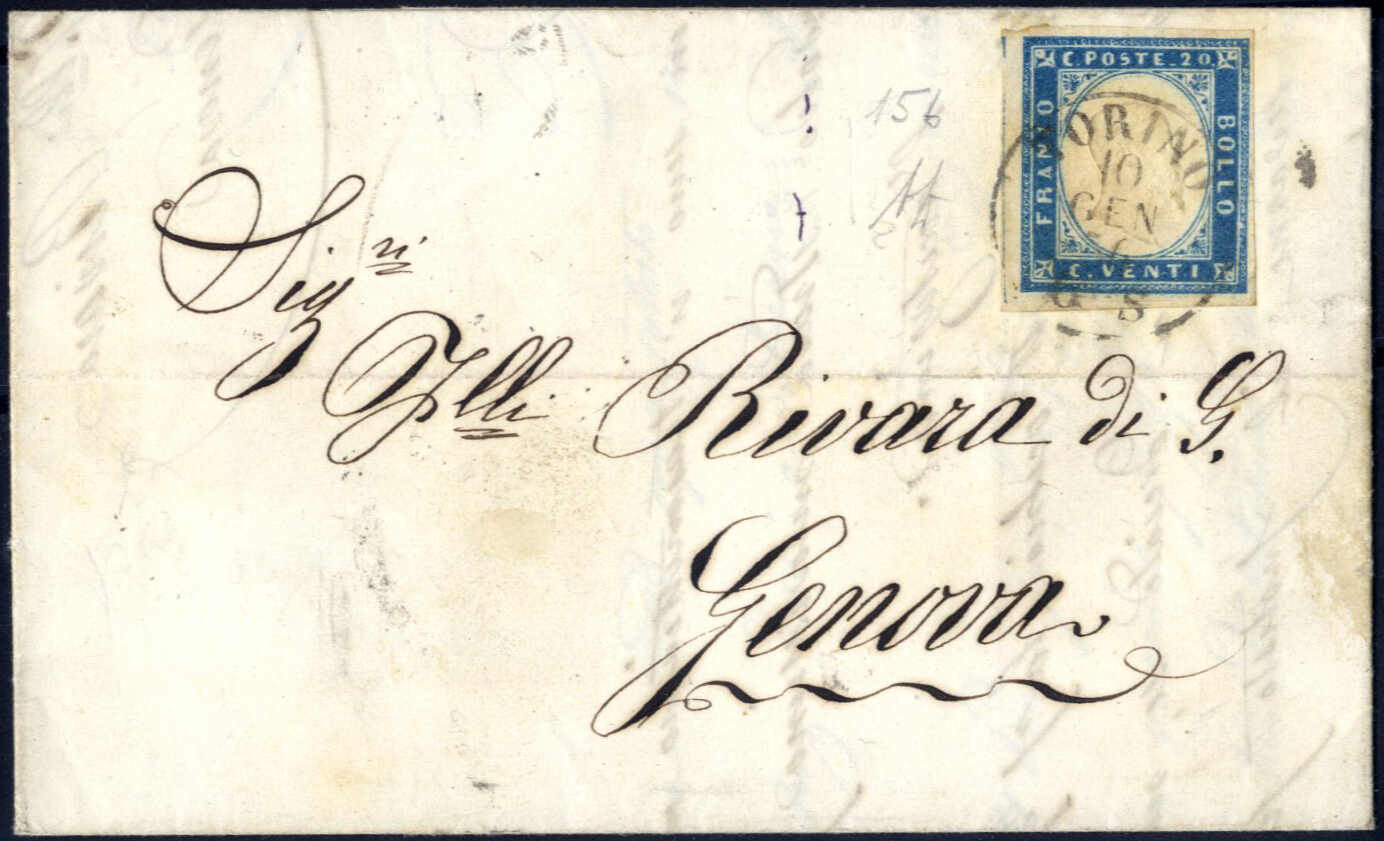 C. POSTE. 20.
FRANCO
BOLLO
C. VENTI
TORINO
10
GEN
8
15b
Sigri
Flli Rivara di G.
Genova